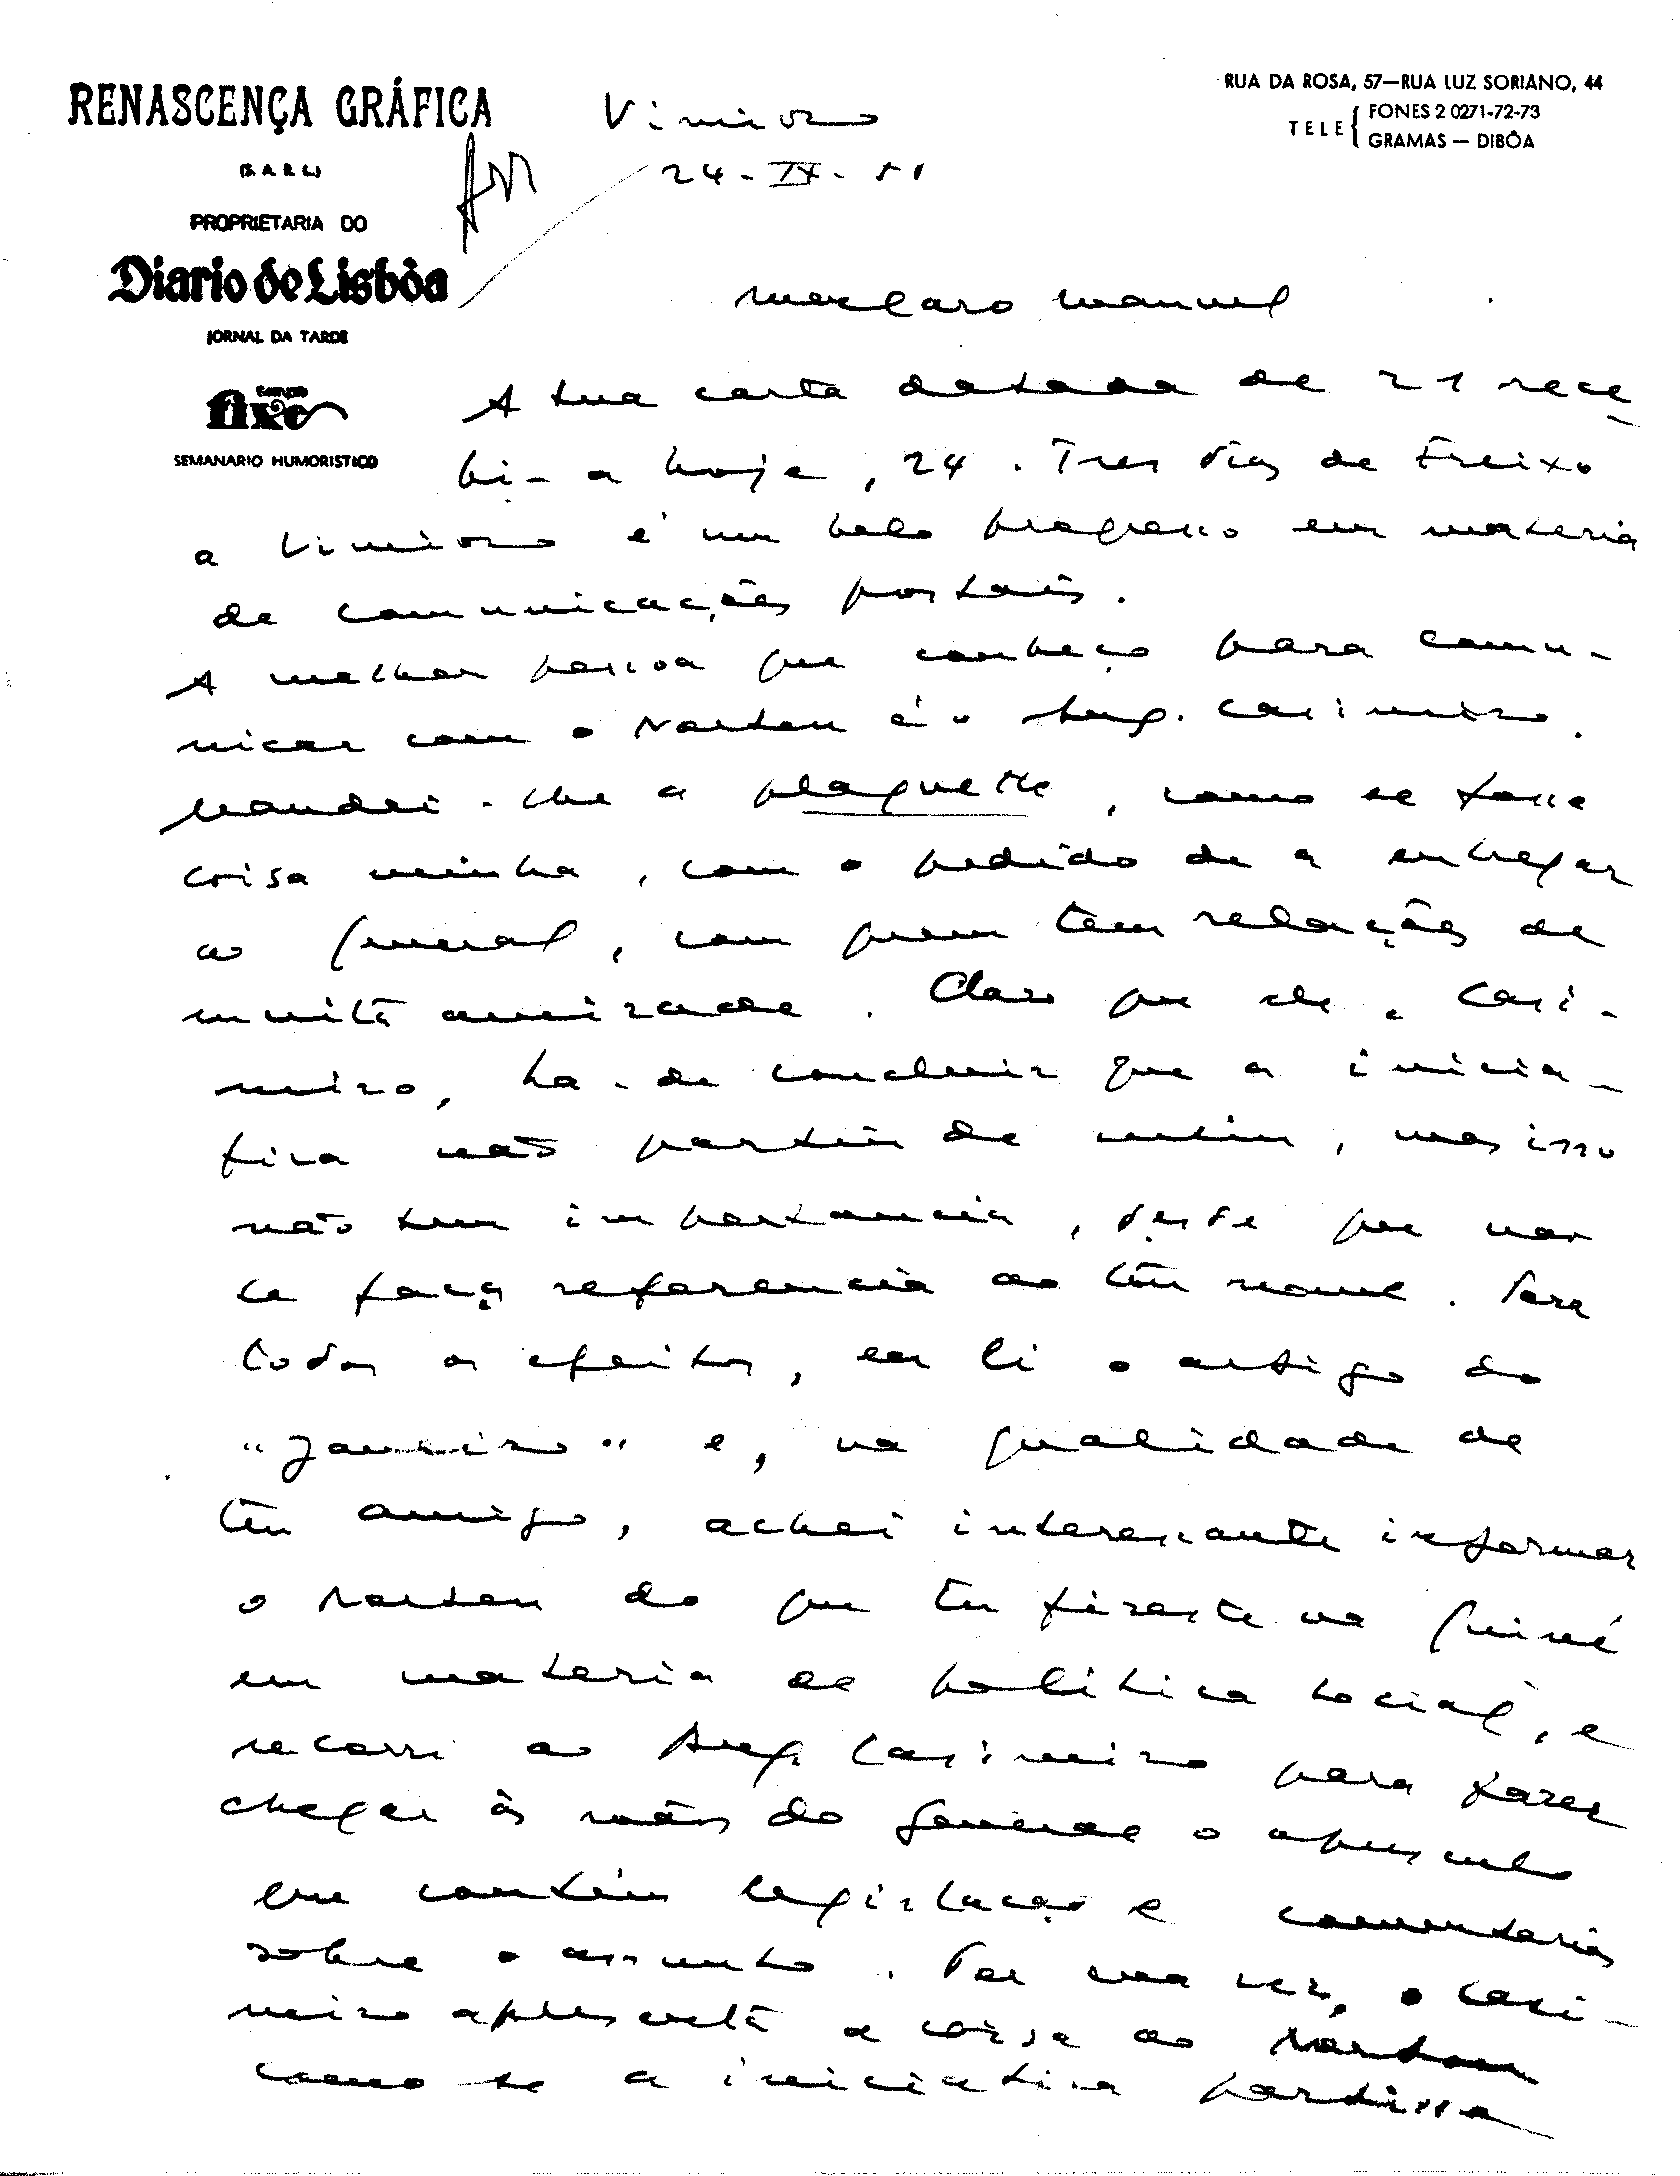 RENASCENÇA GRÁFICA
(S A R L)
PROPRIETARIA DO
Diario de Lisbôa
JORNAL DA TARDE
fixe
SEMANARIO HUMORISTICO
RUA DA ROSA, 57—RUA LUZ SORIANO, 44
TELE { FONES 2 0271-72-73
GRAMAS — DIBÔA
Vimioso
24-IX-51
Meu caro Manuel
A tua carta datada de 21 rece
bi-a hoje, 24. Tres dias de Freixo
a Vimioso é um belo progresso em materia
de comunicações postais.
A melhor pessoa que conheço para comu-
nicar com o Norton é o Aug. Casimiro.
Mandei-lhe a plaquette, como se fosse
coisa minha, com o pedido de a entregar
ao general, com quem tem relações de
muita amizade. Claro que ele, Casi-
miro, ha-de concluir que a inicia-
tiva não partiu de mim, mas isso
não tem importancia, desde que não
se faça referencia ao teu nome. Para
todos os efeitos, eu li o artigo do
"Janeiro" e, na qualidade de
teu amigo, achei interessante informar
o Norton do que tu fizeste na Guiné
em materia de politica social, e
recorri ao Aug. Casimiro para fazer
chegar às mãos do general o opusculo
que contém legislação e comentarios
sobre o assunto. Por sua vez, o Casi-
miro apresenta a coisa ao Norton
como se a iniciativa partisse